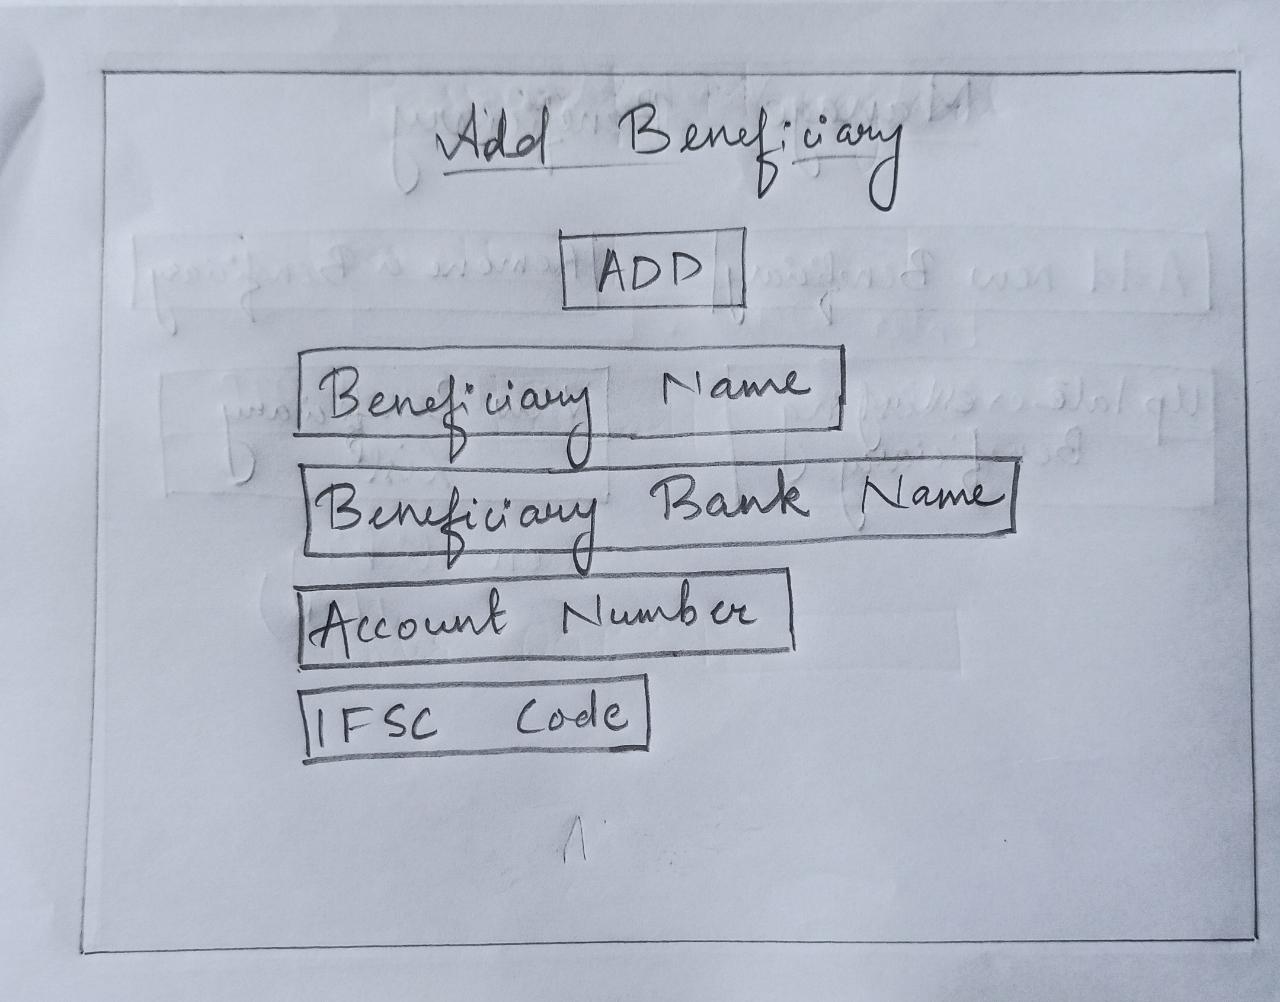 Add Beneficiary
ADD
Beneficiary Name
Beneficiary Bank Name
Account Number
IFSC Code